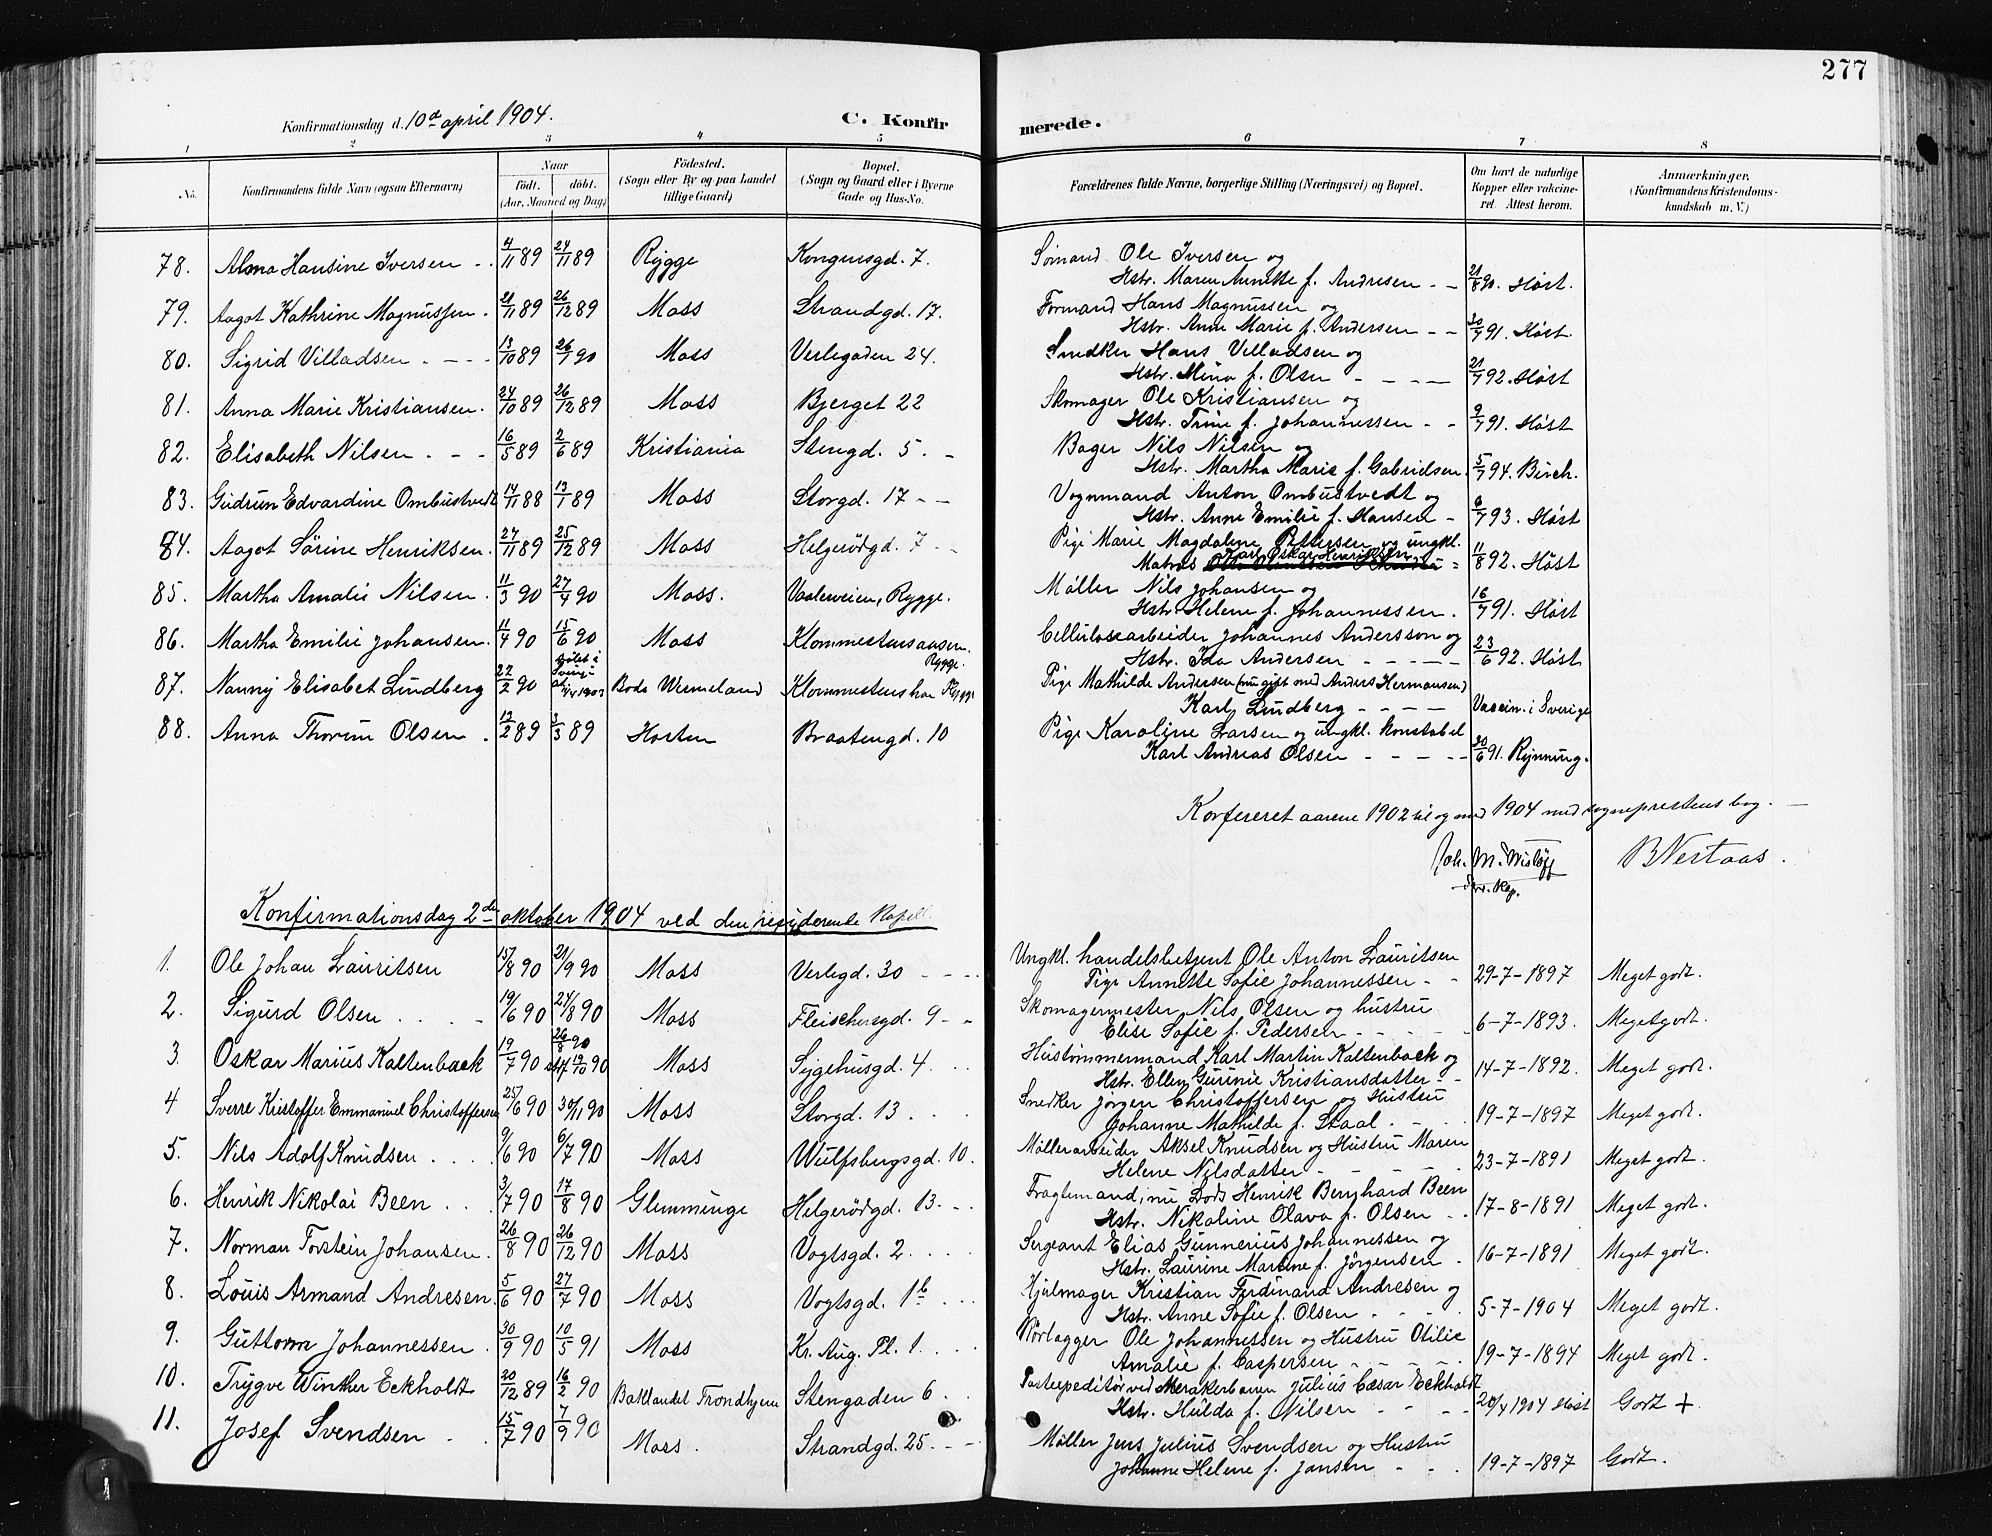 277
Konfirmationsdag d. 10de april 1904.
C. Konfirmerede.
1 2 3 4 5 6 7 8
No. Konfirmandens fulde Navn (ogsaa Efternavn) Naar født. døbt. (Aar, Maaned og Dag) Fødested. (Sogn eller By og paa Landet tillige Gaard) Bopæl. (Sogn og Gaard eller i Byerne Gade og Hus-No. Forældrenes fulde Navne, borgerlige Stilling (Næringsvei) og Bopæl. Om havt de naturlige Kopper eller vakcineret. Attest herom. Anmærkninger. (Konfirmandens Kristendomskundskab m. V.)
78. Alma Hansine Iversen 4/11 89 24/11 89 Rygge Kongensgd. 7. Sømand Ole Iversen og
Hstr. Maren Annette f. Andresen 21/8 90. Høst.
79. Aagot Kathrine Magnussen 21/11 89 26/12 89 Moss Strandgd. 17. Formand Hans Magnussen og
Hstr. Anne Marie f. Andersen 30/7 91. Høst
80. Sigrid Villadsen 13/10 89 26/1 90 Moss Verlegaden 24. Snedker Hans Villadsen og
Hstr. Mina f. Olsen 21/7 92. Høst
81. Anna Marie Kristiansen 24/10 89 26/12 89 Moss Bjerget 22 Skomager Ole Kristiansen og
Hstr. Trine f. Johannessen 9/7 91. Høst
82. Elisabeth Nilsen 16/5 89 2/6 89 Kristiania Stengd. 5. Bager Nils Nilsen og
Hstr. Martha Marie f. Gabrielsen 5/7 94. Birch.
83. Gudrun Edvardine Ombustvedt 14/11 88 13/1 89 Moss Storgd. 17 Vognmand Anton Ombustvedt og
Hstr. Anne Emilie f. Hansen 6/7 93. Høst
84. Aagot Sørine Henriksen 27/11 89 25/12 89 Moss Helgerødgd. 7 Pige Marie Magdalene Pettersen og ungkl.
Matros Karl Oskar Henriksen 11/8 92. Høst
85. Martha Amalie Nilsen 11/3 90 27/4 90 Moss. Vaalerveien, Rygge. Møller Nils Johansen og
Hstr. Helene f. Johannessen 16/7 91. Høst
86. Martha Emilie Johansen 11/4 90 15/6 90 Moss Klommestensaasen. Rygge. Cellulosearbeider Johannes Andersson og
Hstr. Ida Andersen 23/6 92. Høst
87. Nanny Elisabet Lindberg 22/2 90 døbt i Sverige Boda Wermeland Klommestensha Rygge Pige Mathilde Andersen (nu gift med Anders Hermansen)
Karl Lindberg Vaccin. i Sverige
88. Anna Thorine Olsen 12/2 89 3/3 89 Horten Braatengd. 10 Pige Karoline Larsen og ungkl. Konstabel
Karl Andreas Olsen 30/6 91. Rynning.
Konfereret aarene 1902 til og med 1904 med sogneprestens bog.
Joh. M. Wisløff B Nestaas.
res. Kap.
Konfirmationsdag 2den oktober 1904 ved den residerende Kapell.
1. Ole Johan Lauritsen 15/8 90 21/9 90 Moss Verlegd. 30 Ungkl. handelsbetjent Ole Anton Lauritsen
Pige Annette Sofie Johannessen 29-7-1897 Meget godt.
2. Sigurd Olsen 19/6 90 24/8 90 Moss Fleischersgd. 9 Skomagermester Nils Olsen og hustru
Elise Sofie f. Pedersen 6-7-1893. Meget godt.
3. Oskar Marius Kaltenback 19/7 90 26/8 90 st 19/10 90 Moss Sygehusgd. 4 Hustømmermand Karl Martin Kaltenback og
Hstr. Ellen Gurine Kristiansdatter 14-7-1892. Meget godt.
4 Sverre Kristoffer Emmanuel Christoffersen 25/6 90 30/11 90 Moss Storgd. 13 Snedker Jørgen Christoffersen og Hustru
Johanne Mathilde f. Staal 19-7-1897 Meget godt.
5. Nils Adolf Knudsen 9/6 90 6/7 90 Moss Wulfsbergsgd. 10. Møllerarbeider Aksel Knudsen og Hustru Maren
Helene Nilsdatter 23-7-1891 Meget godt.
6. Henrik Nikolai Been 3/7 90 17/8 90 Glemminge Helgerødgd. 13. Fragtemand, nu Død, Henrik Bernhard Been
Hstr. Nikoline Olava f. Olsen 17-8-1891 Meget godt.
7. Norman Torstein Johansen 26/8 90 26/12 90 Moss Vogtsgd. 2 Sergeant Elias Gunnerius Johannessen og
Hstr. Laurine Martine f. Jørgensen 16-7-1891 Meget godt.
8. Louis Armand Andresen 5/6 90 27/7 90 Moss Vogtsgd. 1b Hjulmager Kristian Ferdinand Andresen og
Hstr. Anne Sofie f. Olsen 5-7-1904 Meget godt.
9. Guttorm Johannessen 30/9 90 10/5 91 Moss Kr. Aug. Pl. 1 Rørlægger Ole Johannessen og Hustru Otilie
Amalie f. Caspersen 19-7-1894 Meget godt.
10. Trygve Winther Eckholdt 20/12 89 16/2 90 Baklandet Trondhjem Stengaden 6 ved Merakerbanen Julius Cæsar Eckholdt
Hstr. Hulda f. Nilsen 20/4 1904 Høst Godt +
11. Josef Svendsen 15/7 90 7/9 90 Moss. Strandgd. 25 Møller Jens Julius Svendsen og Hustru
Johanne Helene f. Jansen 19-7-1897 Godt.